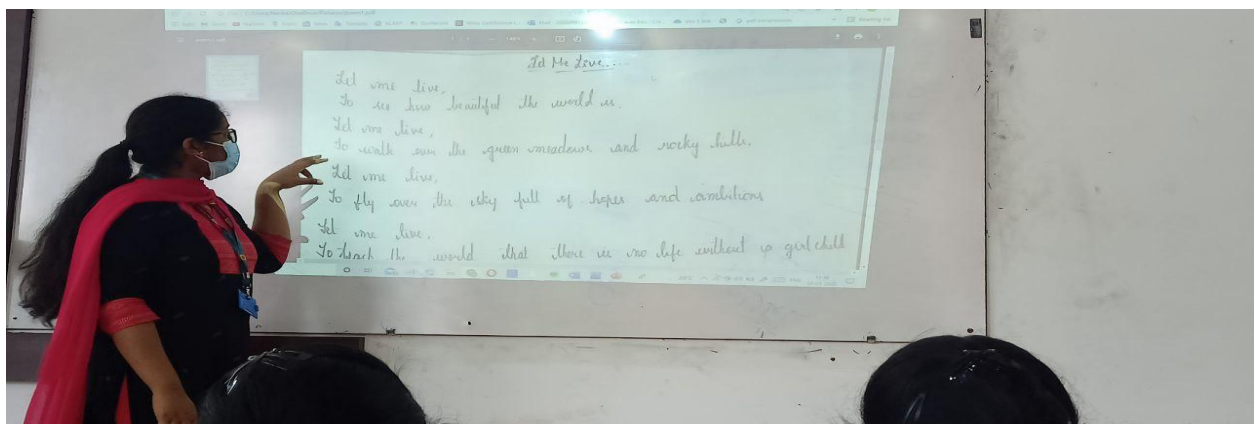 Let Me Live.....
Let me live,
To see how beautiful the world is.
Let me live,
To walk over the green meadows and rocky hills.
Let me live,
To fly over the sky full of hopes and ambitions
Let me live.
To teach the world that there is no life without a girl child